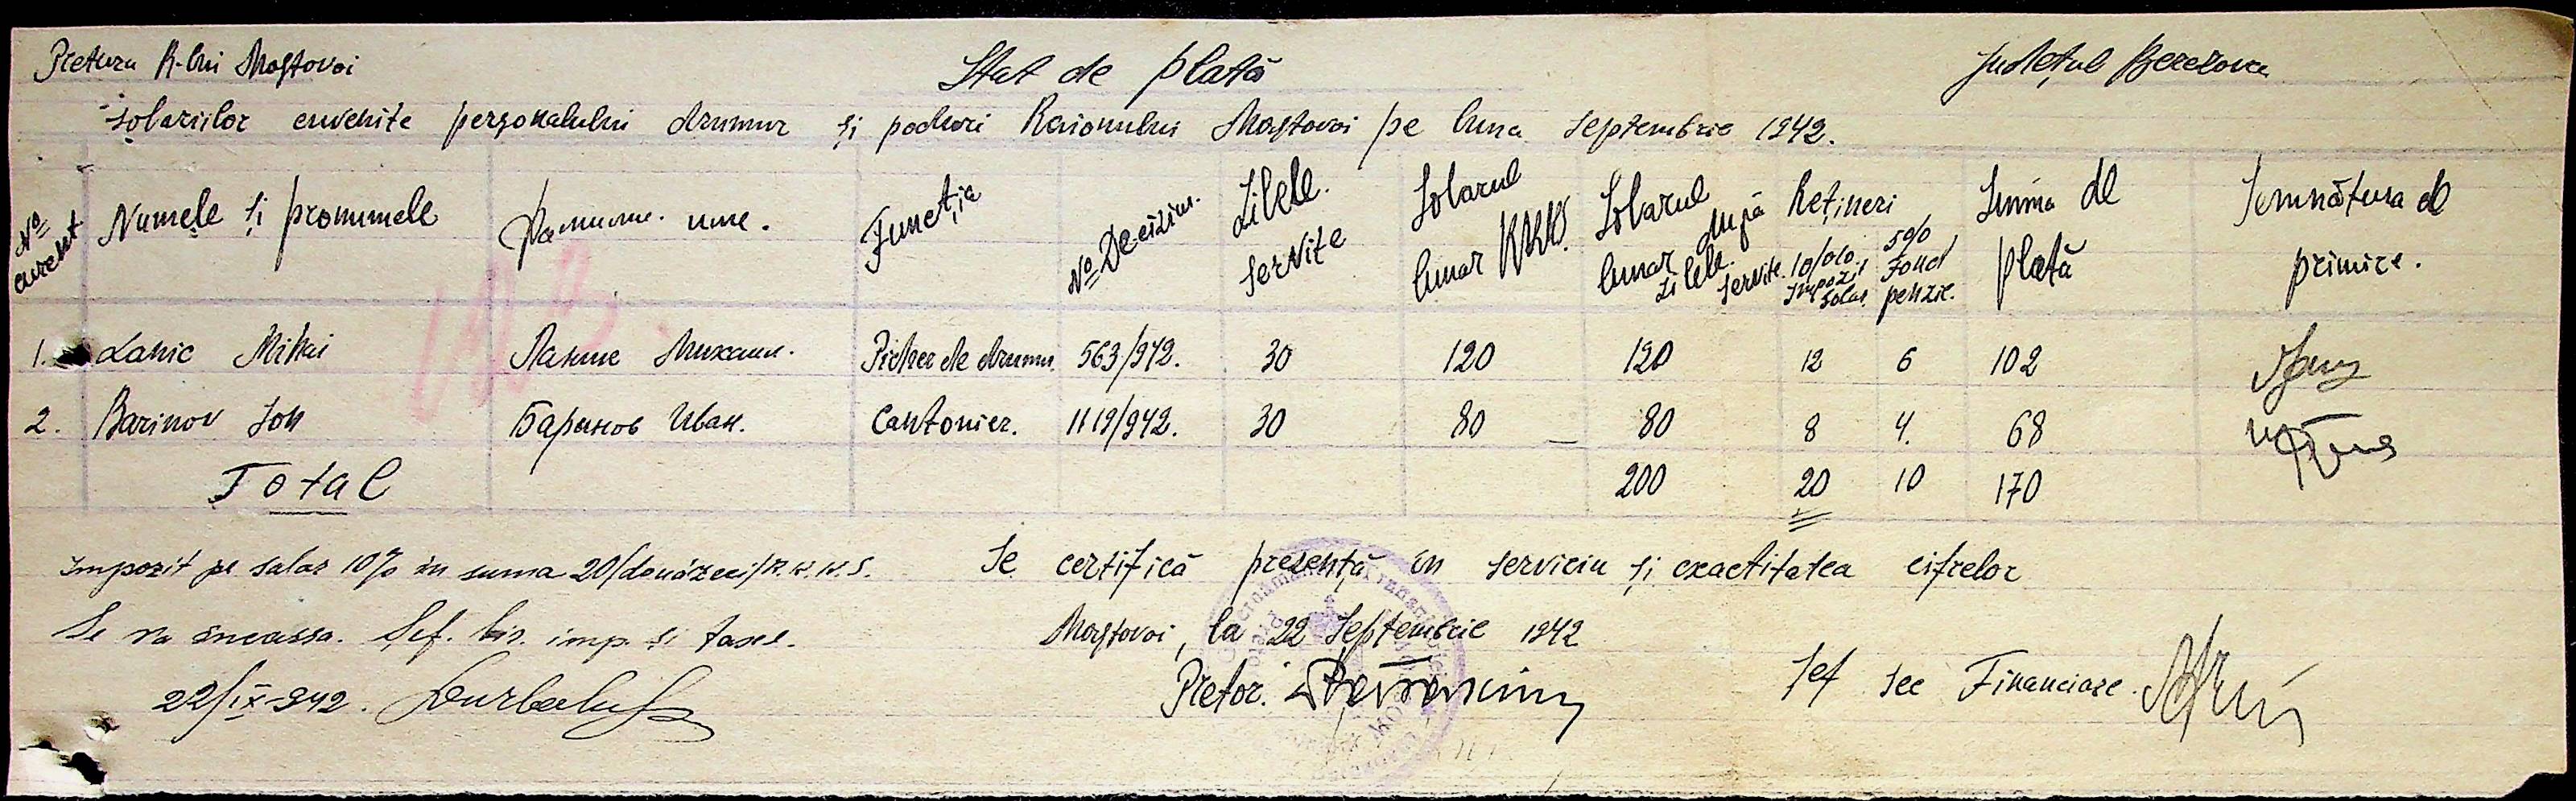 Pretura R-lui Mostovoi
Stat de plată
Județul Berezovca
solariilor cuvenite personalului drumur și poduri Raionului Mostovoi pe luna Septembrie 1942.
No curent
Numele și pronumele
Фамилие. име.
Funcția
No Deciziu.
Zilele servite
Solarul lunar RKKS.
Solarul lunar după zilele servite.
Rețineri
10/0/0 Impozit solar
5% Fond penzie.
Suma de plată
Semnătura de primire.
1. Lanic Mihai Ланик Михаил. Picher de drumu. 563/942. 30 120 120 12 6 102
2. Barinov Ion Баринов Иван. Cantonier. 1119/942. 30 80 — 80 8 4. 68
Total 200 20 10 170
Impozit pe salar 10% în suma 20/douăzeci/R.K.K.S.
Se va încassa. Șef. bir. imp. și taxe.
22/IX-942.
Se certifică prezență în serviciu și exactitatea cifrelor
Mostovoi, la 22 Septembrie 1942
Pretor.
Șef sec Financiare.